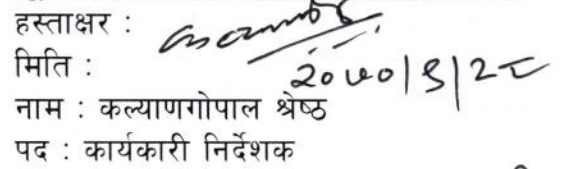 हस्ताक्षर :
मिति : २०७०|९|२८
नाम : कल्याणगोपाल श्रेष्ठ
पद : कार्यकारी निर्देशक